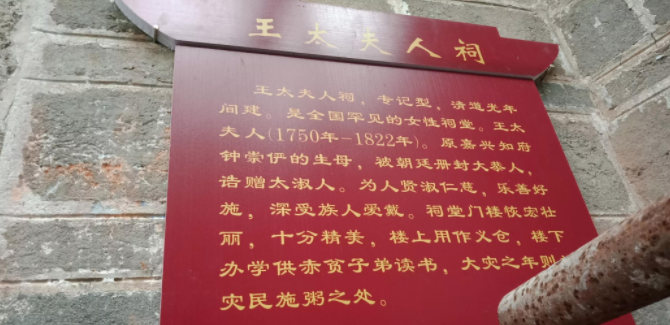 王太夫人祠
王太夫人祠，专记型，清道光年
间建。是全国罕见的女性祠堂。王太
夫人(1750年-1822年)。原嘉兴知府
钟崇伊的生母，被朝廷册封大恭人，
诰赠太淑人。为人贤淑仁慈，乐善好
施，深受族人爱戴。祠堂门楼恢宏壮
丽，十分精美，楼上用作义仓，楼下
办学供赤贫子弟读书，大灾之年则
灾民施粥之处。